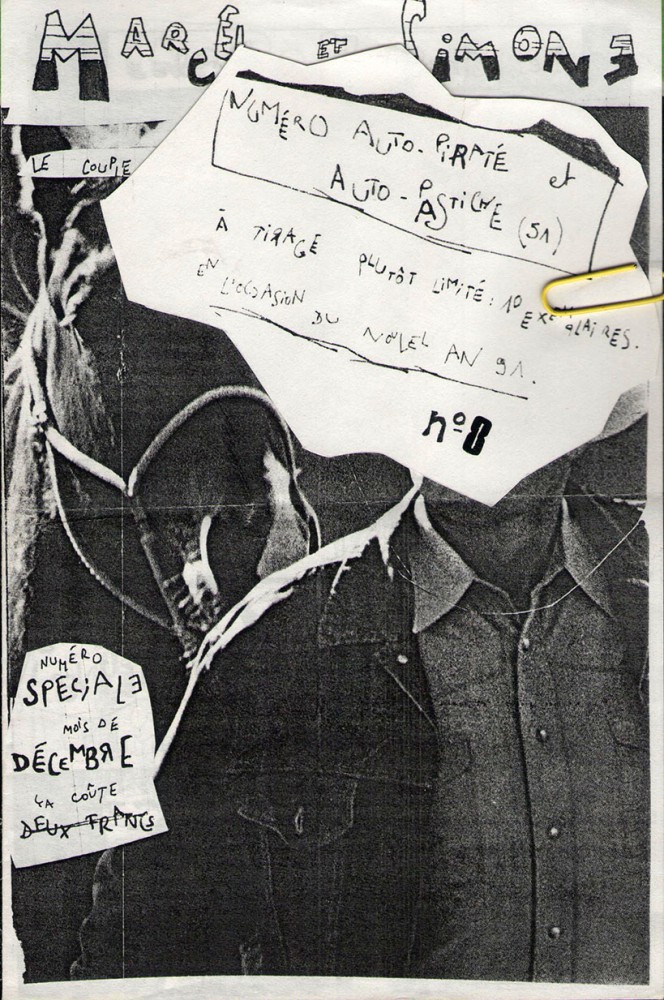 MARCEL ET SIMONE
LE COUPLE
NUMÉRO AUTO-PIRATÉ et
AUTO-PASTICHE (SA)
À TIRAGE PLUTÔT LIMITÉ: 10 EXEMPLAIRES.
EN L'OCCASION DU NOUVEL AN 91.
nº8
NUMÉRO
SPECIALE
MOIS DE
DÉCEMBRE
ÇA COÛTE
DEUX FRANCS